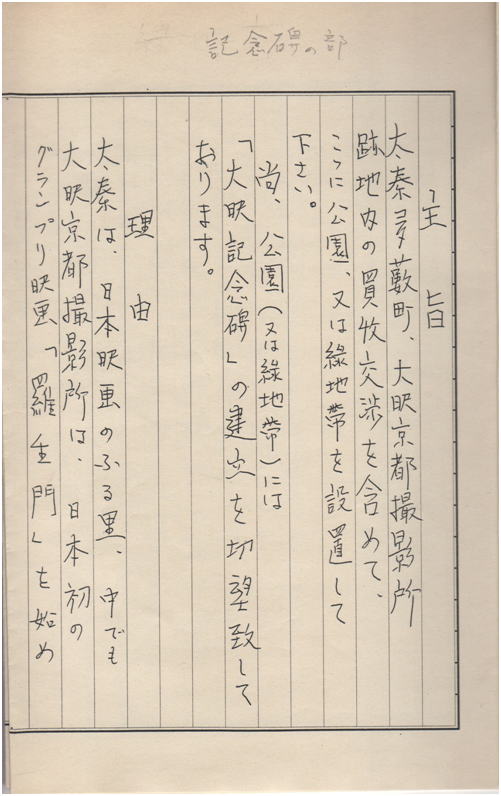 記念碑の部
主旨
太秦多藪町、大映京都撮影所
跡地内の買收交渉を含めて、
こゝに公園、又は緑地帯を設置して
下さい。
尚、公園(又は緑地帯)には
「大映記念碑」の建立を切望致して
おります。
理由
太秦は、日本映画のふる里、中でも
大映京都撮影所は、日本初の
グランプリ映画「羅生門」を始め